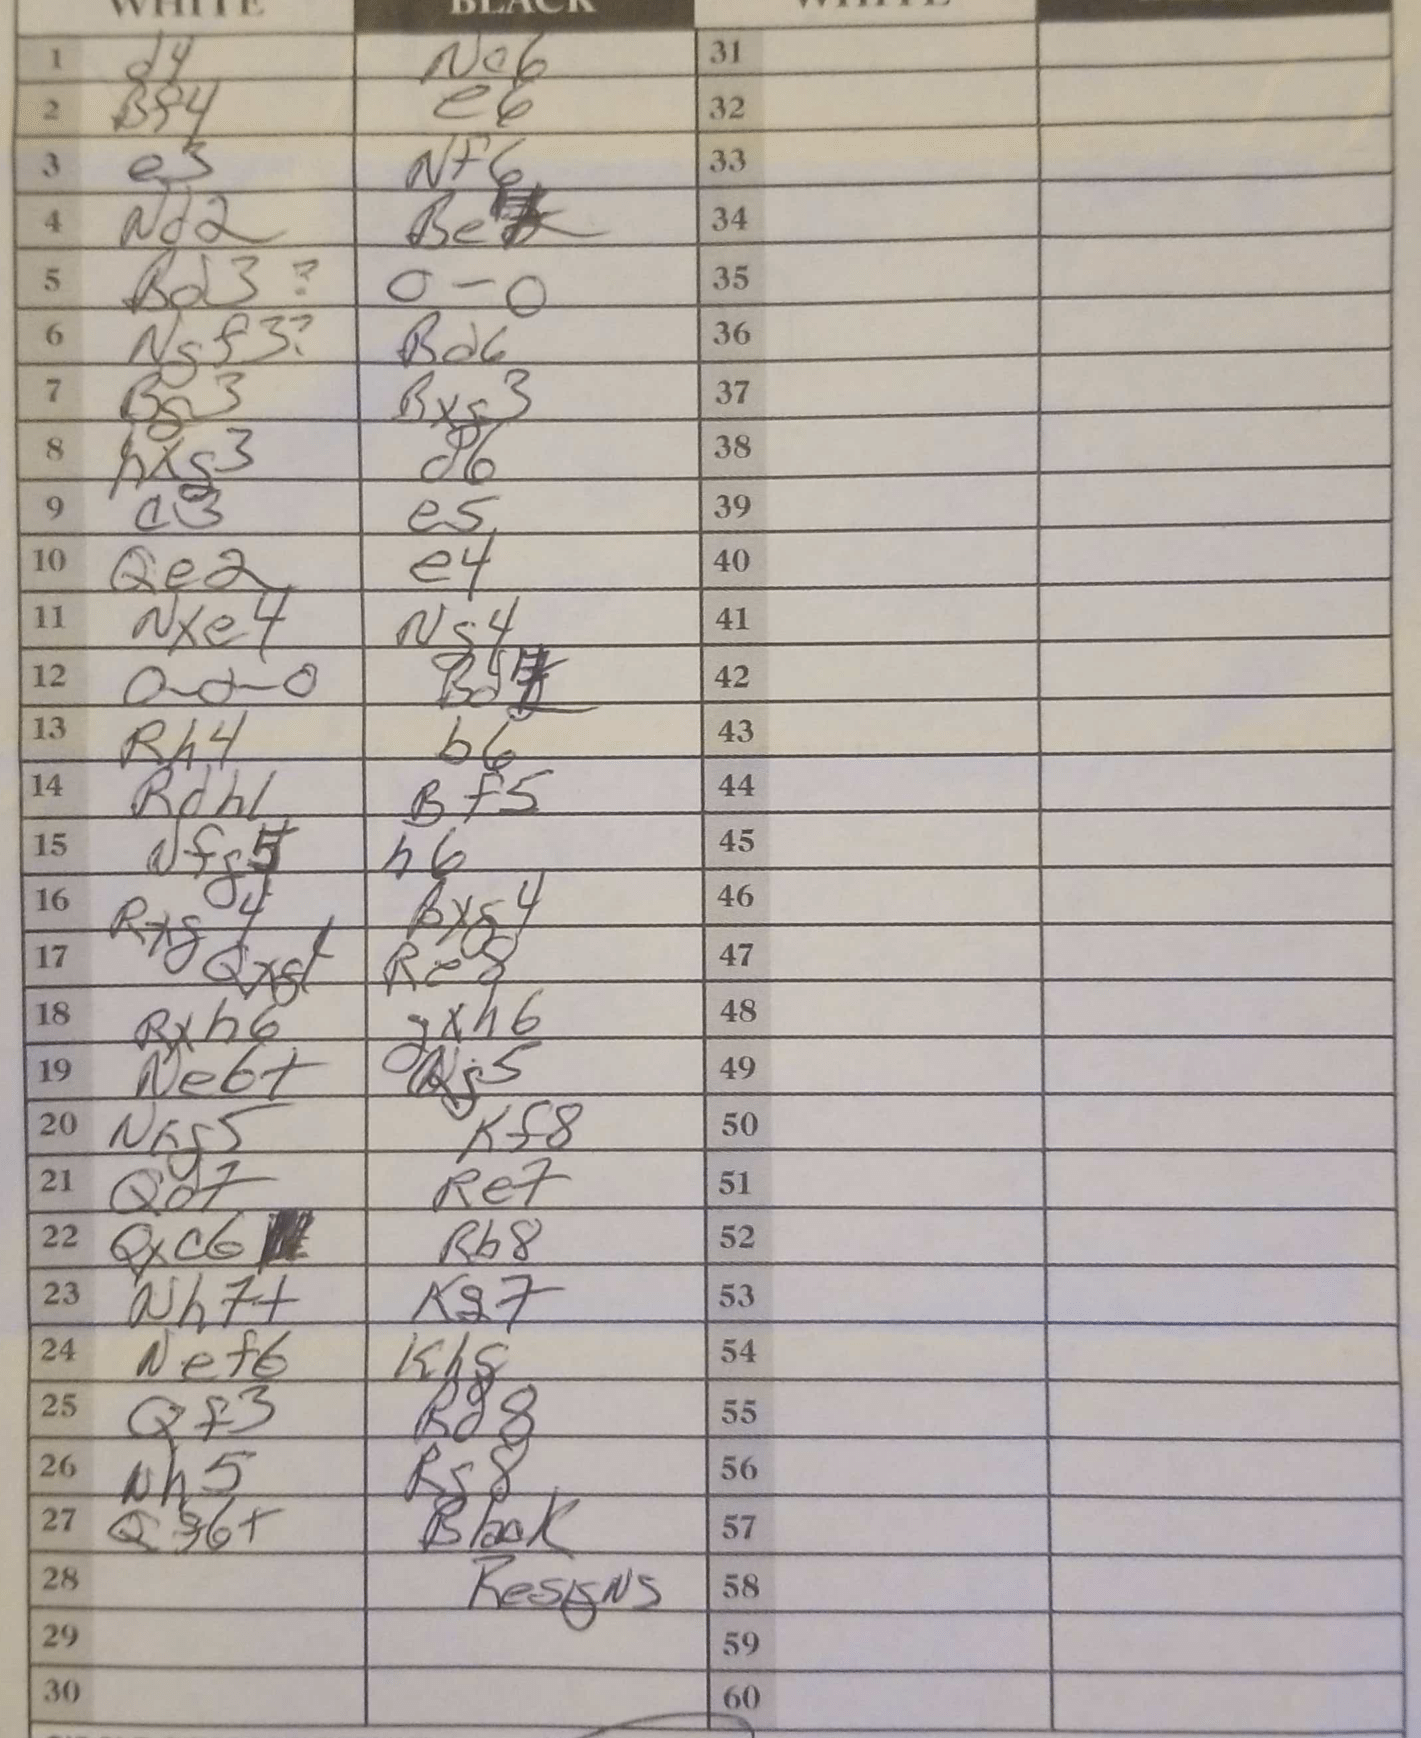 WHITE BLACK WHITE
1 d4 Nc6 31
2 Bf4 e6 32
3 e3 Nf6 33
4 Nd2 Be7 34
5 Bd3? 0-0 35
6 Ngf3? Bd6 36
7 Bg3 Bxg3 37
8 hxg3 d6 38
9 c3 e5 39
10 Qe2 e4 40
11 Nxe4 Ng4 41
12 0-0-0 Bd7 42
13 Rh4 b6 43
14 Rdh1 Bf5 44
15 Nfg5 h6 45
16 Rxg4 Bxg4 46
17 Qxg4 Re8 47
18 Rxh6 gxh6 48
19 Ne6+ Qg5 49
20 Nxg5 Kf8 50
21 Qd7 Re7 51
22 Qxc6 Rb8 52
23 Nh7+ Kg7 53
24 Nef6 Kh8 54
25 Qf3 Rd8 55
26 Nh5 Rg8 56
27 Qg6+ Black 57
28 Resigns 58
29 59
30 60